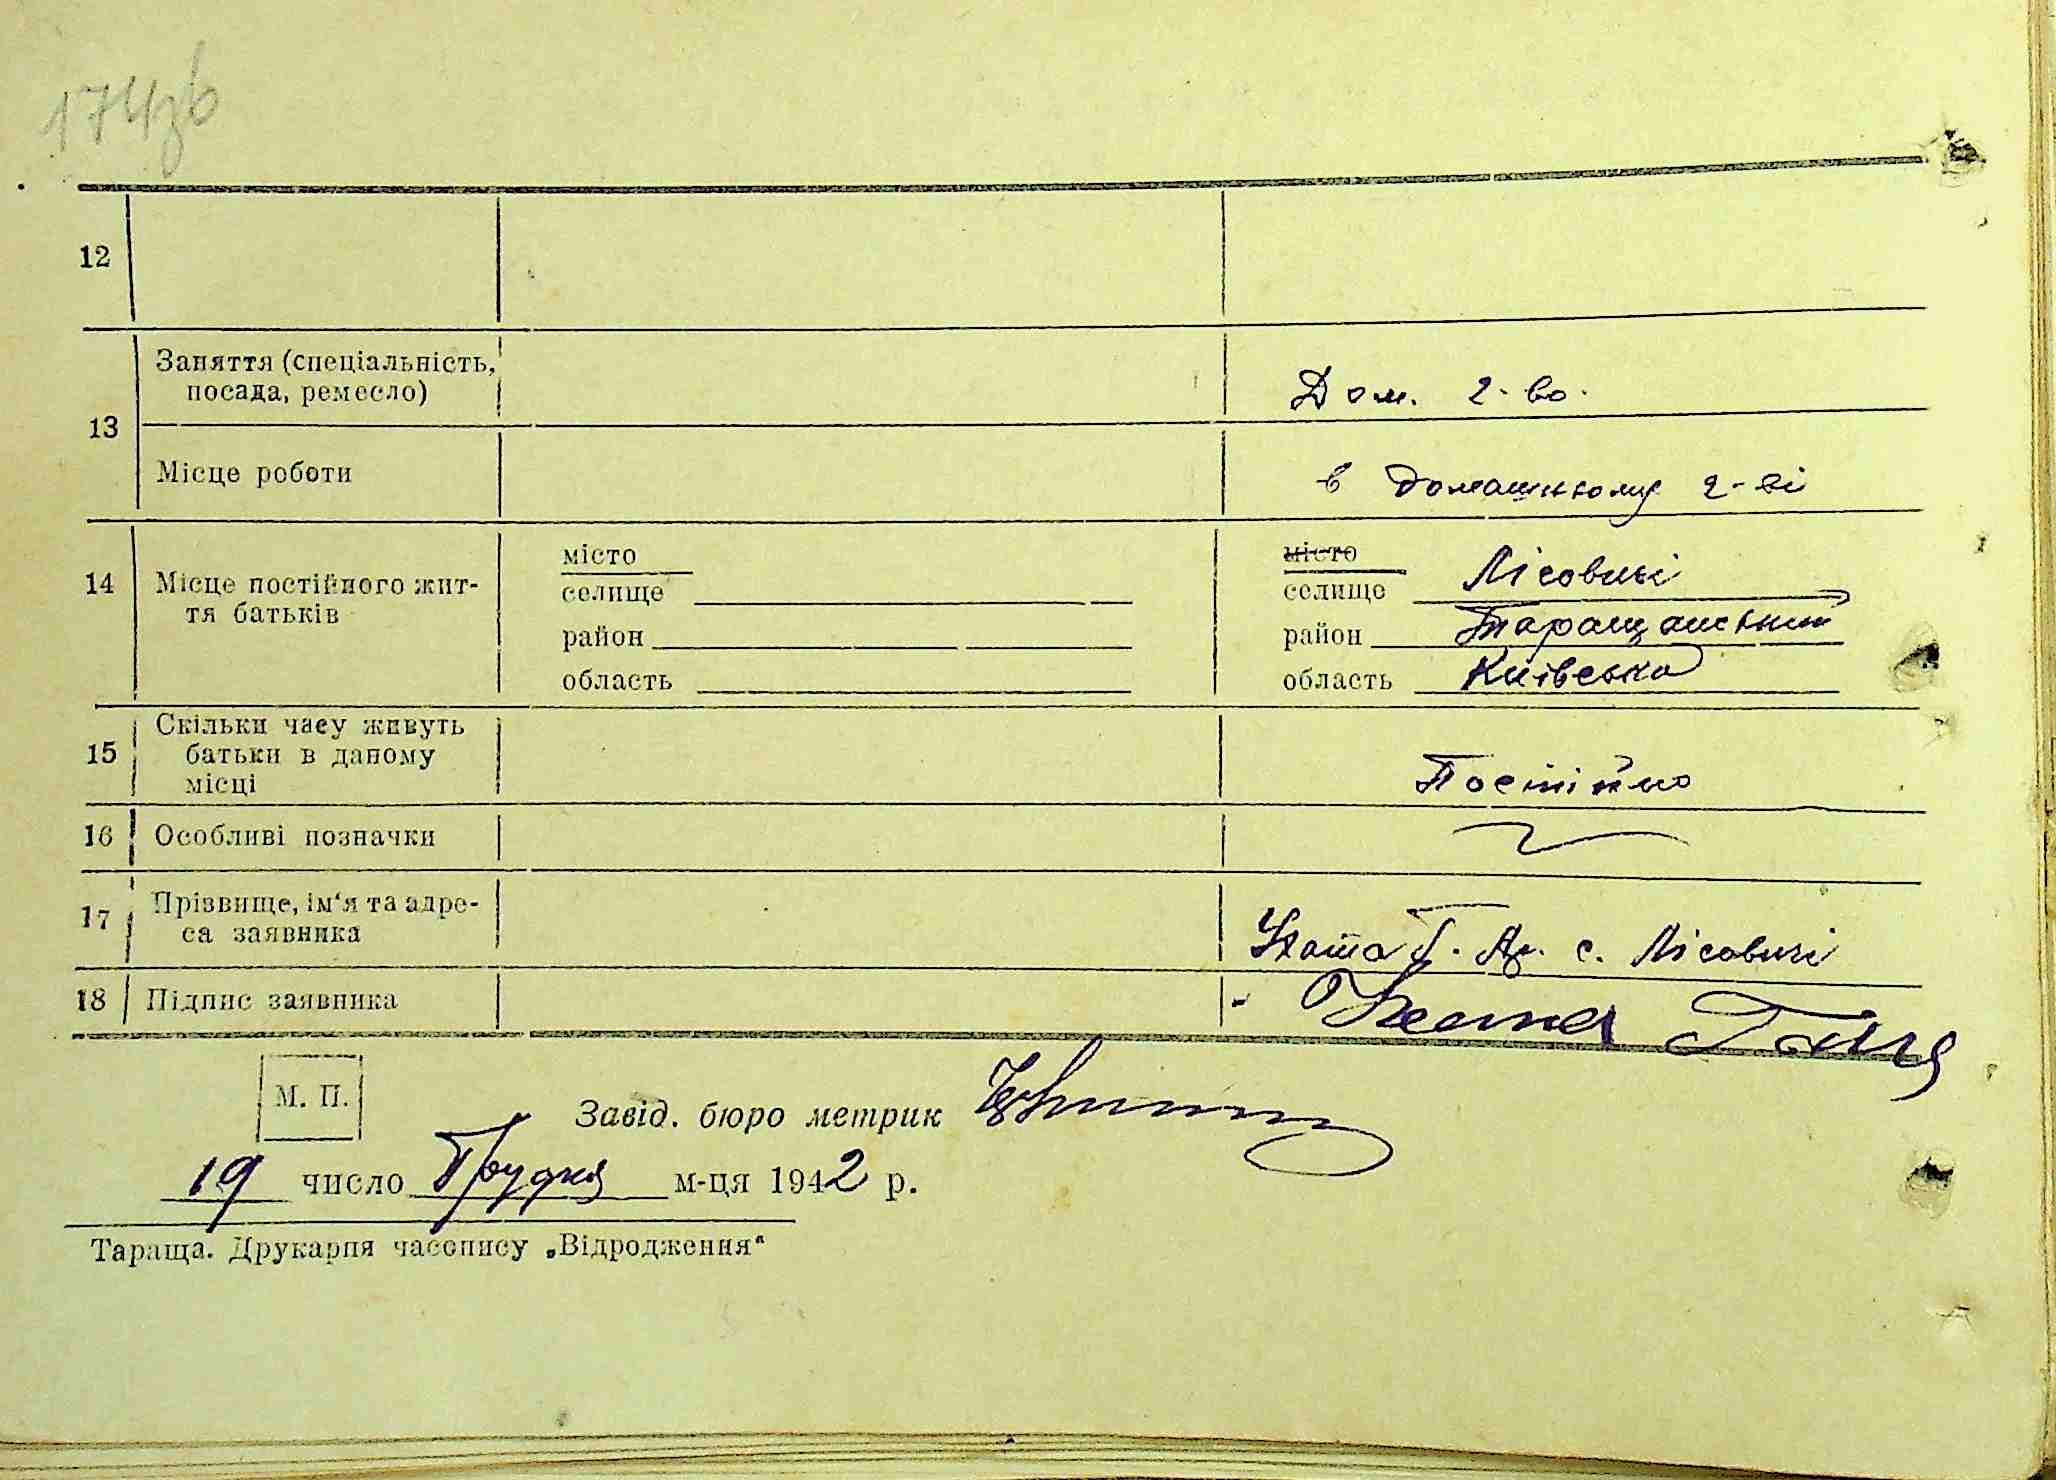 174зв
12
Заняття (спеціальність,
посада, ремесло)
Дом. г-во.
13
Місце роботи
в домашньому г-ві
14
Місце постійного жит-
тя батьків
місто
селище
район
область
місто
селище Лісовичі
район Таращанський
область Київська
15
Скільки часу живуть
батьки в даному
місці
Постійно
16 Особливі позначки
17
Прізвище, ім'я та адре-
са заявника
с. Лісовичі
18 Підпис заявника
М. П.
Завід. бюро метрик
19 число Грудня м-ця 1942 р.
Тараща. Друкарня часопису „Відродження“